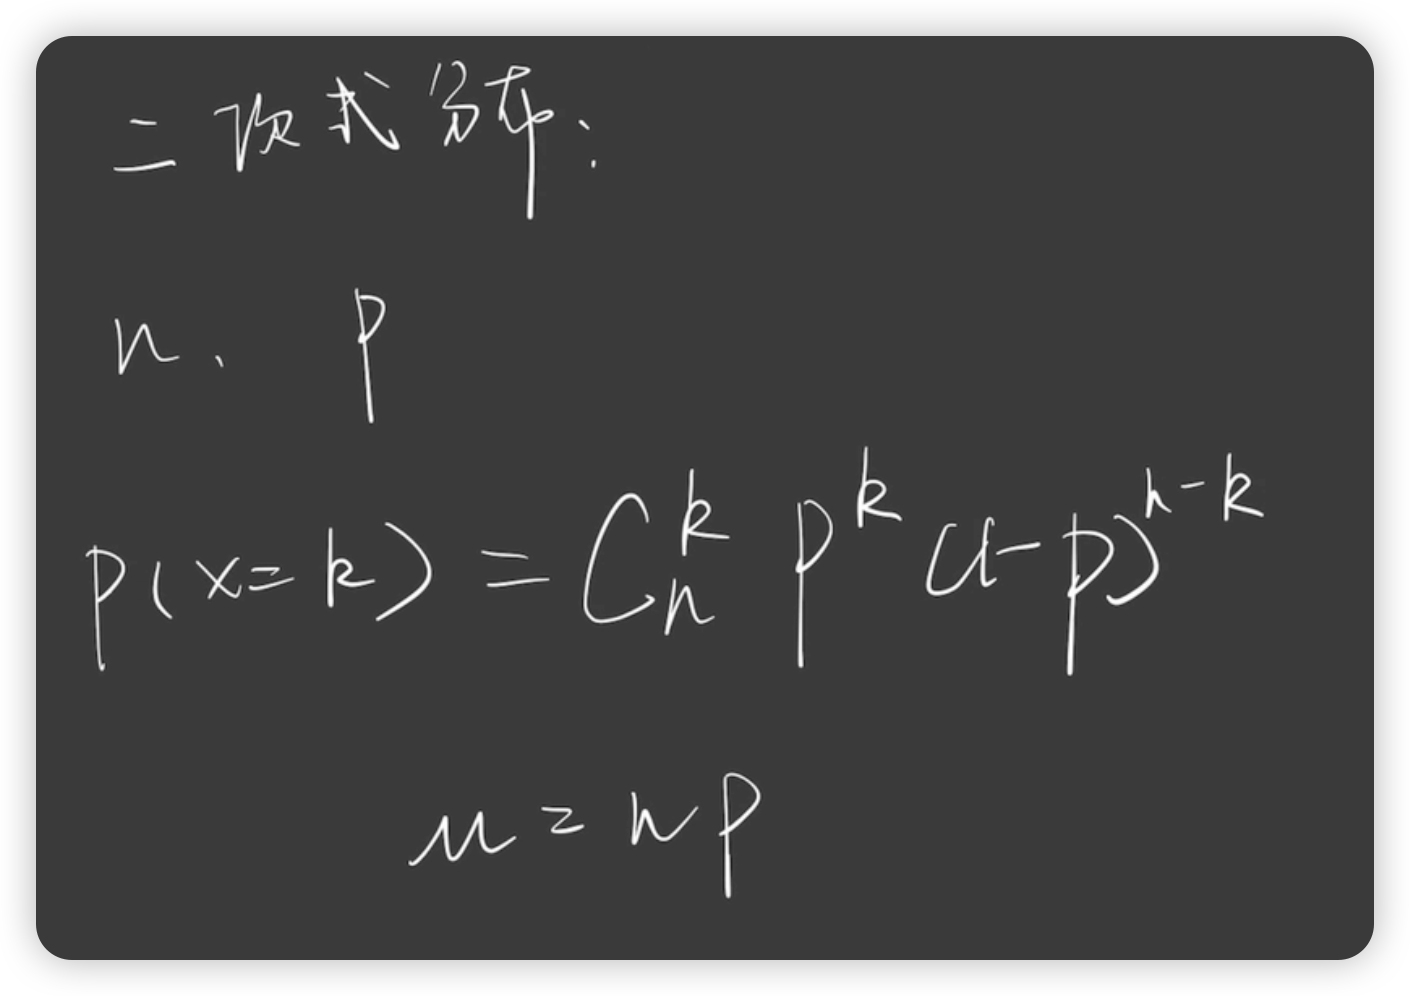 二次式分布:
n、 p
p(x=k) = C_n^k p^k (1-p)^{n-k}
μ = np